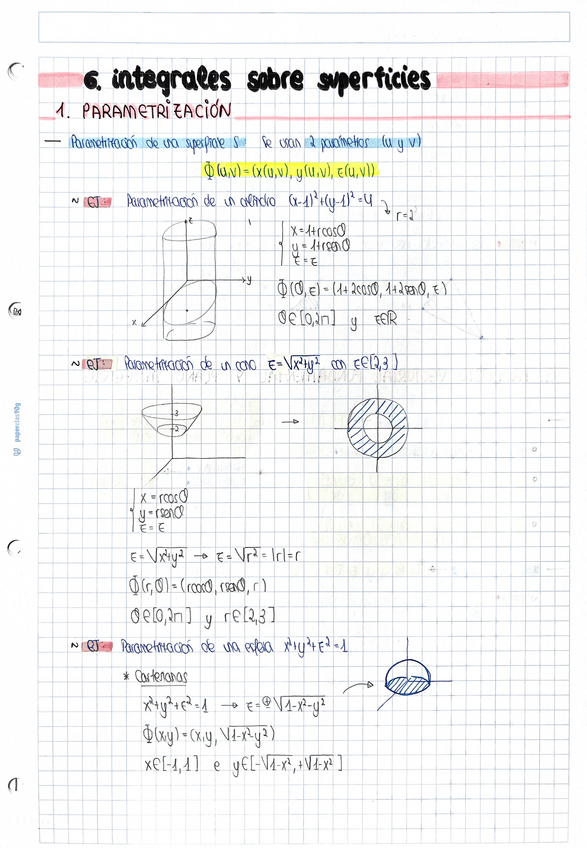 6. integrales sobre superficies
1. PARAMETRIZACIÓN
— Parametrización de una superficie S: Se usan 2 parámetros (u y v)
Φ(u,v) = (x(u,v), y(u,v), z(u,v))
~ EJ: Parametrización de un cilindro (x-1)²+(y-1)²=4
r=2
x=1+rcosθ
y=1+rsenθ
z=z
Φ(θ,z)=(1+2cosθ, 1+2senθ, z)
θ∈[0,2π] y z∈ℝ
z
y
x
~ EJ: Parametrización de un cono z=√x²+y² con z∈[2,3]
3
2
x=rcosθ
y=rsenθ
z=z
z=√x²+y² → z=√r²=|r|=r
Φ(r,θ)=(rcosθ, rsenθ, r)
θ∈[0,2π] y r∈[2,3]
~ EJ: Parametrización de una esfera x²+y²+z²=1
* Cartesianas
x²+y²+z²=1 → z=⊕√1-x²-y²
Φ(x,y)=(x,y,√1-x²-y²)
x∈[-1,1] e y∈[-√1-x², +√1-x²]